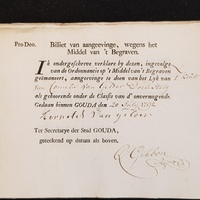 Pro Deo. Billiet van aangeevinge, wegens het
Middel van 't Begraven.
Ik ondergeschreve verklare by dezen, ingevolge
van de Ordonnantie op 't Middel van 't Begraven
geëmaneert, aangevinge te doen van het Lyk van
Cornelis van Gelder
als gehoorende onder de Classis van d' onvermogende.
Gedaan binnen GOUDA, den 20 July 1792
Ter Secretarye der Stad GOUDA,
geteekend op datum als boven,